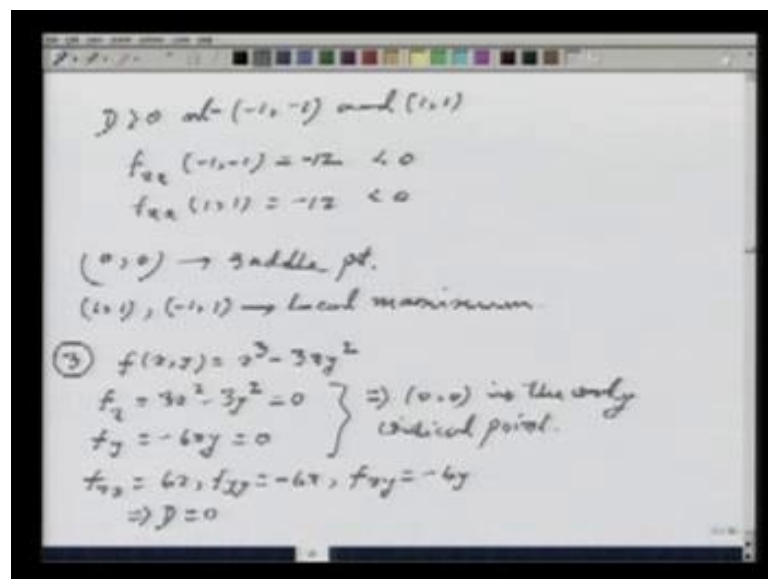 D > 0 at (-1, -1) and (1, 1)
f_xx (-1, -1) = -12 < 0
f_xx (1, 1) = -12 < 0
(0, 0) → saddle pt.
(1, 1), (-1, 1) → Local maximum
③ f(x, y) = x³ - 3xy²
f_x = 3x² - 3y² = 0 } ⇒ (0, 0) is the only
f_y = -6xy = 0 critical point.
f_xx = 6x, f_yy = -6x, f_xy = -6y
⇒ D = 0